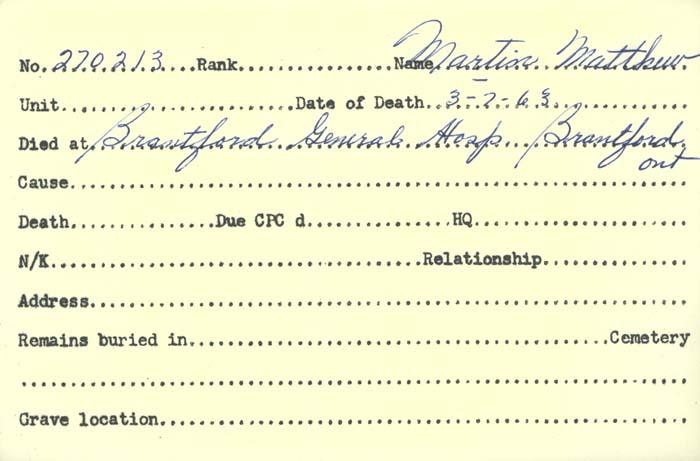 No. 270213....Rank...............Name Martin Matthew
Unit...........................Date of Death..3-7-63
Died at Brantford General Hosp Brantford
ont
Cause
Death...............Due CPC d...............HQ
N/K...............................................Relationship
Address
Remains buried in...........................................Cemetery
Grave location